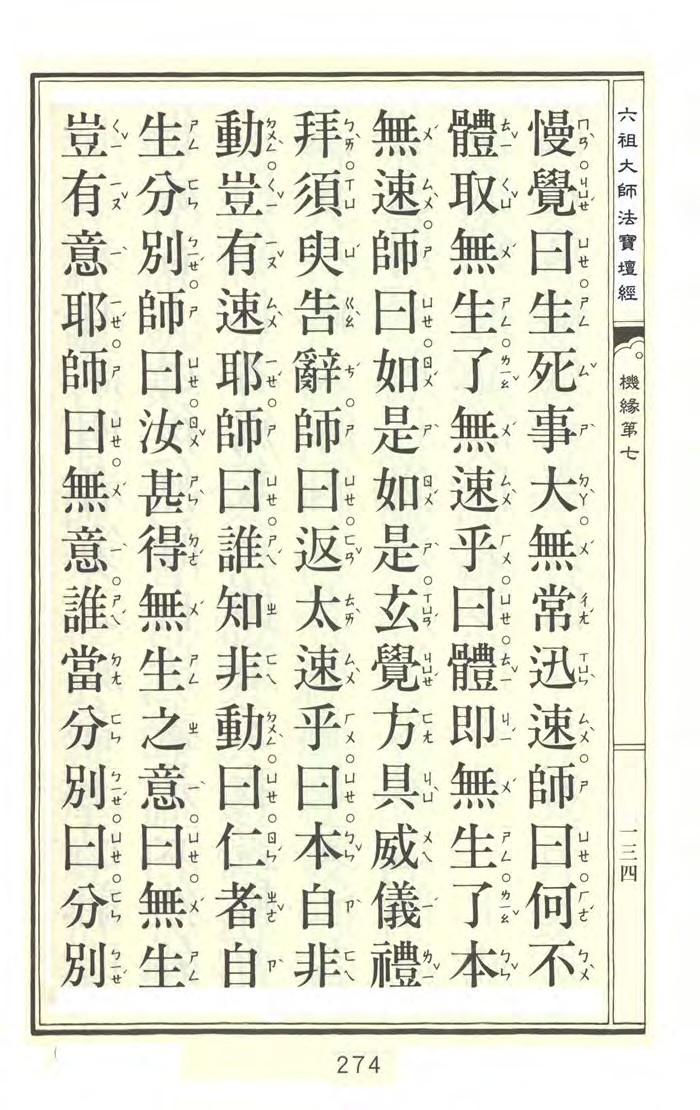 六祖大師法寶壇經
機緣第七
一三四
慢。覺曰。生死事大。無常迅速。師曰。何不
體取無生。了無速乎。曰。體即無生。了本
無速。師曰。如是如是。玄覺方具威儀禮
拜。須臾告辭。師曰。返太速乎。曰。本自非
動。豈有速耶。師曰。誰知非動。曰。仁者自
生分別。師曰。汝甚得無生之意。曰。無生
豈有意耶。師曰。無意。誰當分別。曰。分別
274